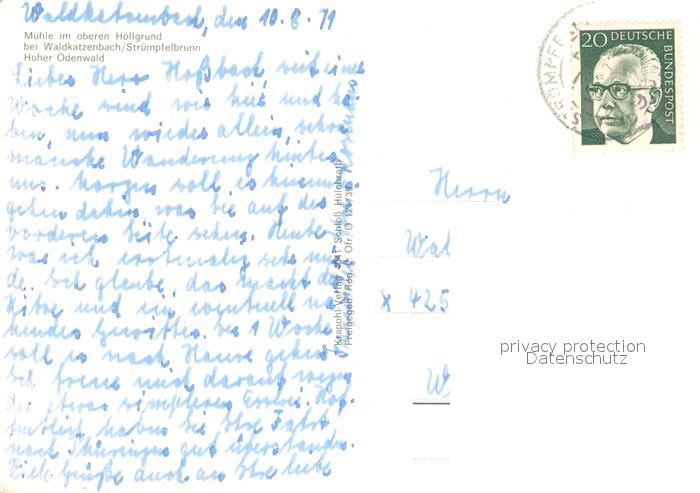 Waldkatzenbach, den 10.8.71
Mühle im oberen Höllgrund
bei Waldkatzenbach/Strümpfelbrunn
Hoher Odenwald
Liebes Herr Hoßbach, seit einer
Woche sind wir hier und ha-
ben, nun wieder allein, schon
manche Wanderung hinter
uns. Morgen soll es hinunter
gehen dahin, was Sie auf der
vorderen Seite sehen. Heute
war ich erstmalig sehr mü-
de. Ich glaube, das macht die
Hitze und ein eventuell na-
hendes Gewitter. In 1 Woche
soll es nach Hause gehen.
Ich freue mich darauf wegen
des etwas simpleren Essens. Hof-
fentlich haben Sie Ihre Fahrt
nach Thüringen gut überstanden.
Viele Grüße auch an Ihre liebe
Krapohl-Verlag 4041 Schloß Hülchrath
Freigegeb. Reg.
20 DEUTSCHE
BUNDESPOST
STRÜMPFELB
Herrn
Wal
x 425
W
privacy protection
Datenschutz